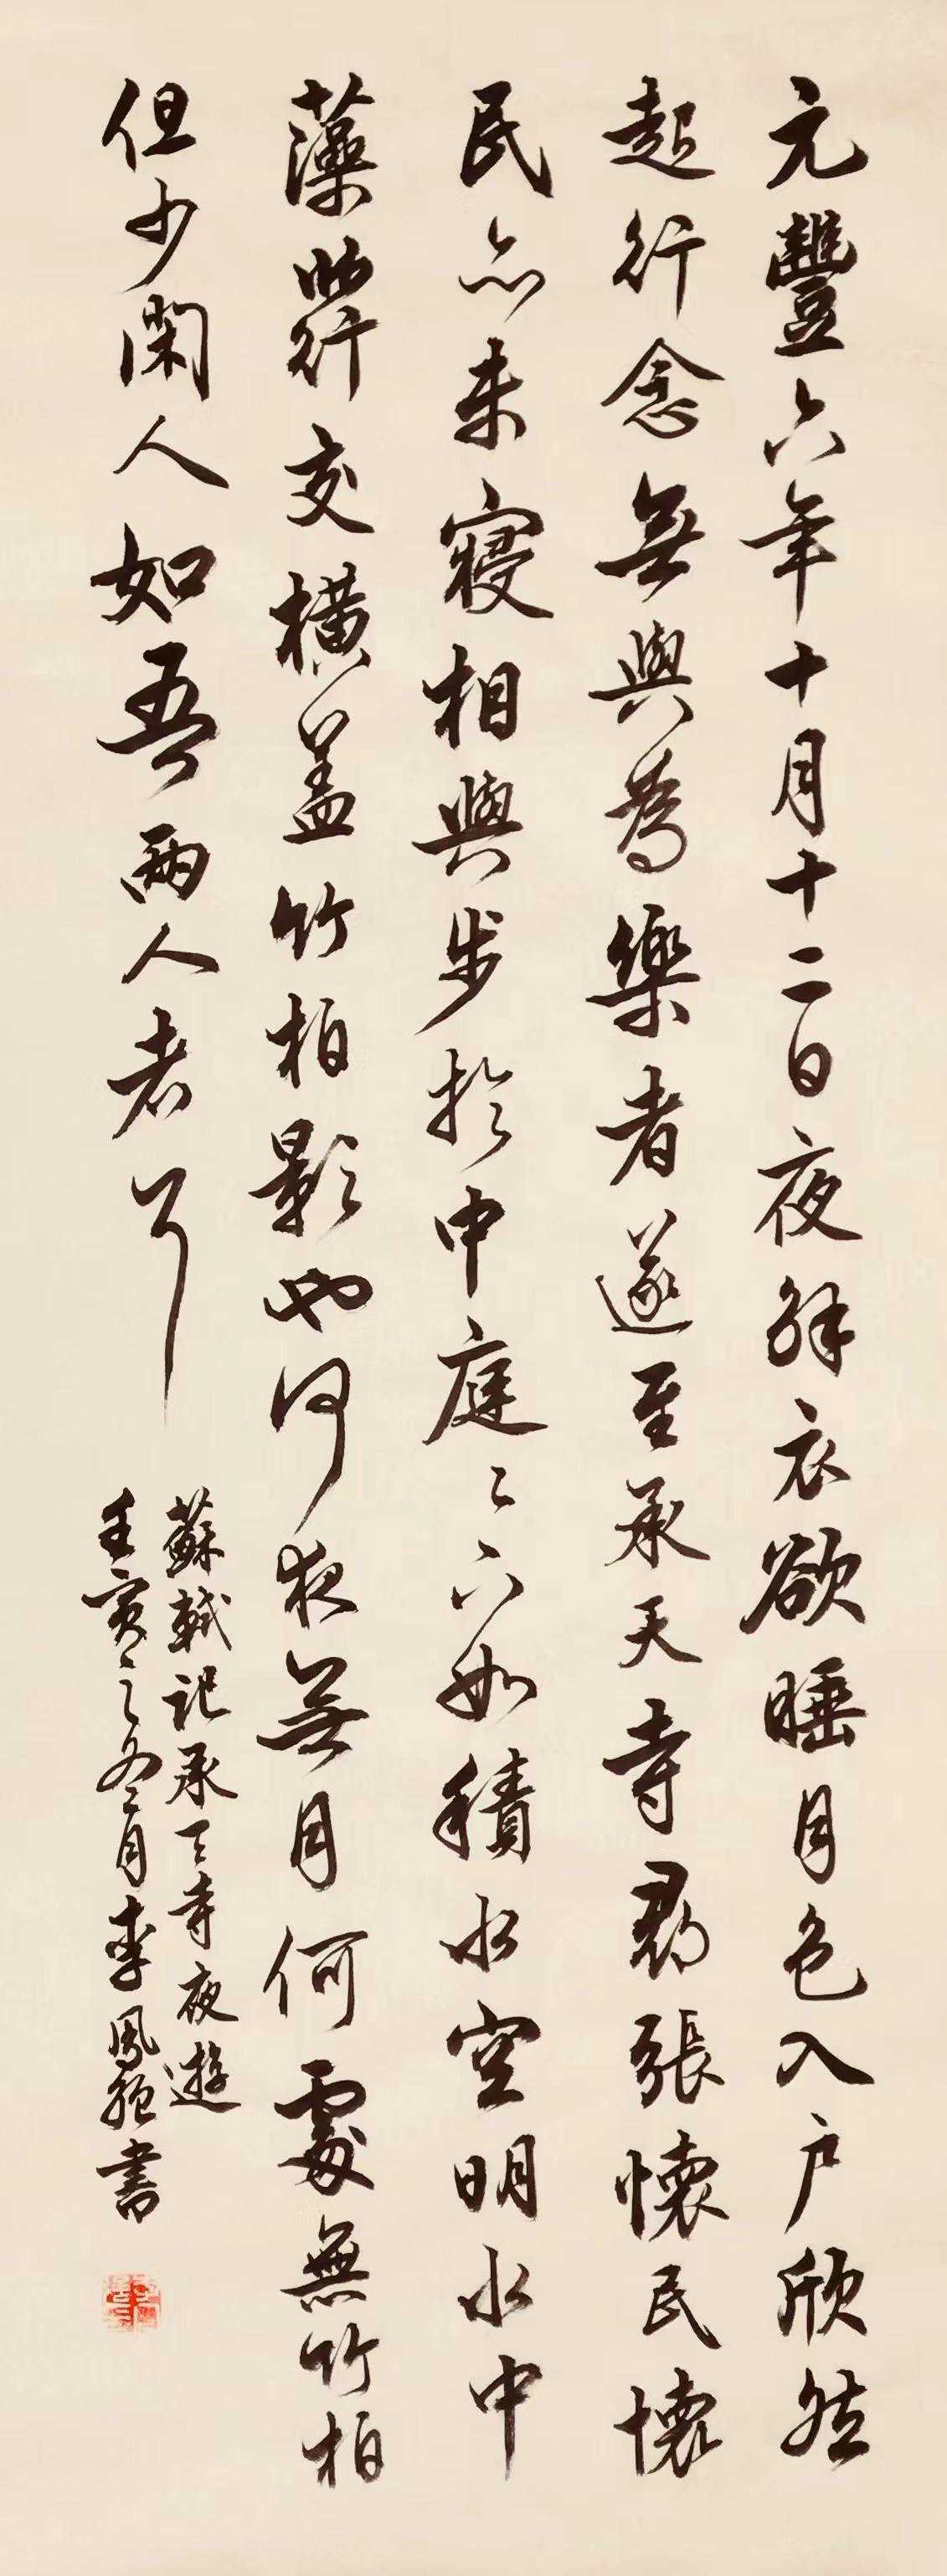 元豐六年十月十二日夜解衣欲睡月色入户欣然
起行念無與為樂者遂至承天寺尋張懷民懷
民亦未寢相與步於中庭々下如積水空明水中
藻荇交橫盖竹柏影也何夜無月何處無竹柏
但少閑人如吾兩人者耳
蘇軾記承天寺夜遊
壬寅之冬月李鳳書